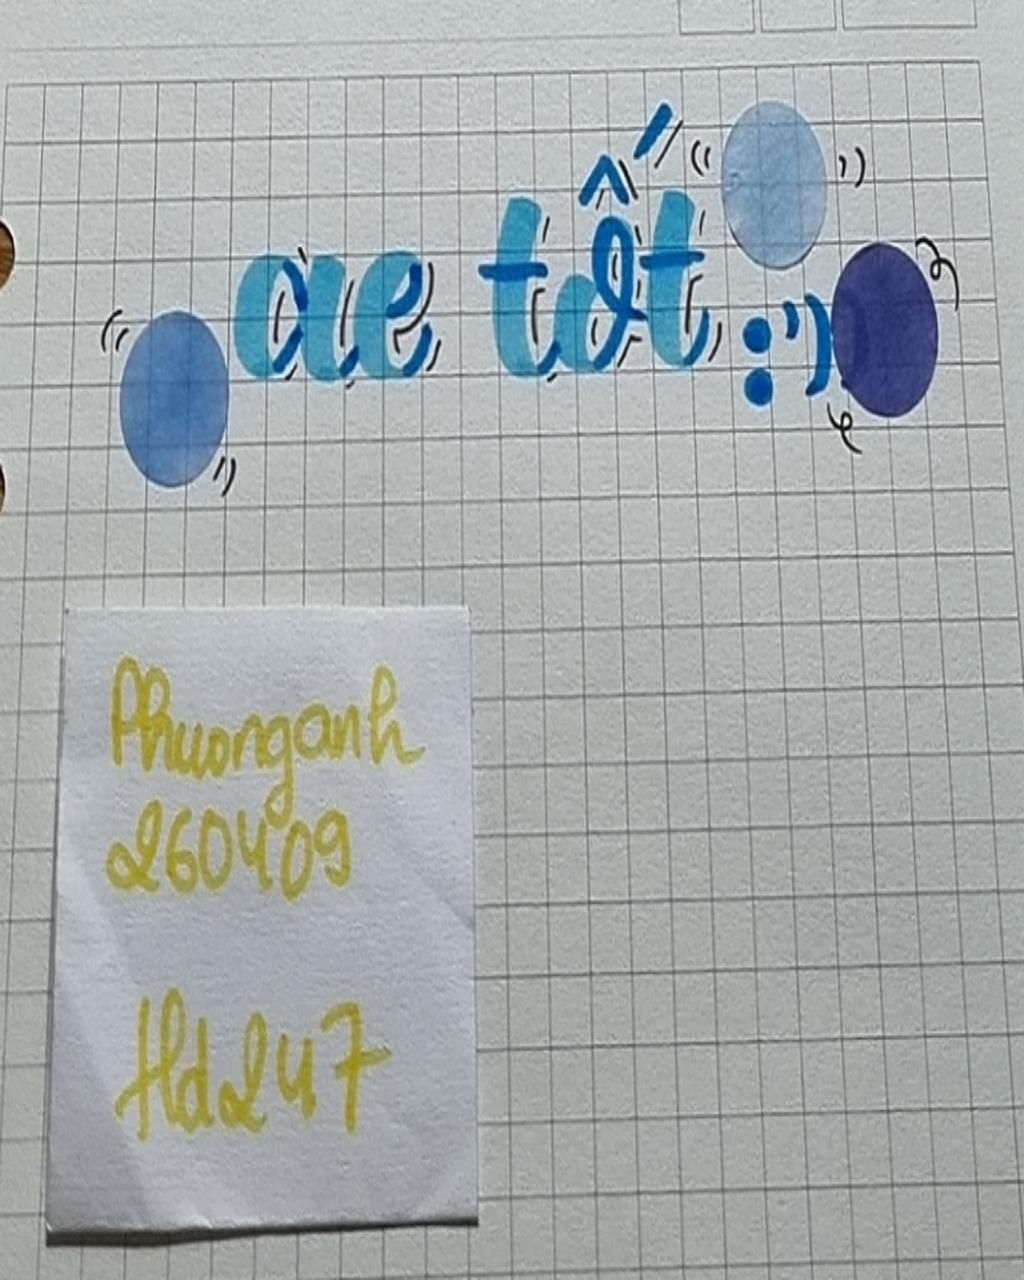 ae tốt :')
Phuonganh
260409
Hd247